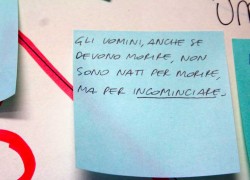 GLI UOMINI, ANCHE SE
DEVONO MORIRE, NON
SONO NATI PER MORIRE,
MA PER INCOMINCIARE.